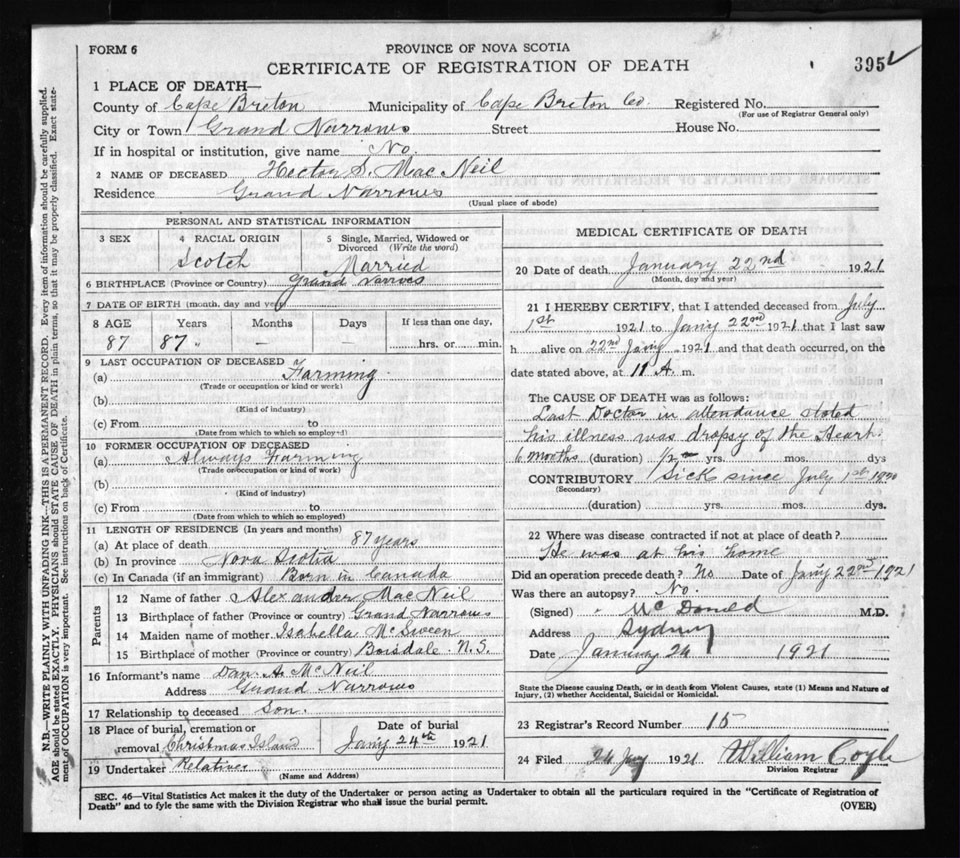 FORM 6
PROVINCE OF NOVA SCOTIA
CERTIFICATE OF REGISTRATION OF DEATH
395
1 PLACE OF DEATH—
County of Cape Breton Municipality of Cape Breton Co. Registered No.
(For use of Registrar General only)
City or Town Grand Narrows Street House No.
If in hospital or institution, give name No.
2 NAME OF DECEASED Hector S. Mac Neil
Residence Grand Narrows
(Usual place of abode)
PERSONAL AND STATISTICAL INFORMATION
3 SEX 4 RACIAL ORIGIN 5 Single, Married, Widowed or Divorced (Write the word)
Scotch Married
6 BIRTHPLACE (Province or Country) Grand Narrows
7 DATE OF BIRTH (month, day and year)
8 AGE Years Months Days If less than one day,
87 87 " — — hrs. or min.
9 LAST OCCUPATION OF DECEASED
(a) Farming
(Trade or occupation or kind or work)
(b)
(Kind of industry)
(c) From to
(Date from which to which so employed)
10 FORMER OCCUPATION OF DECEASED
(a) Always Farming
(Trade or occupation or kind of work)
(b)
(Kind of industry)
(c) From to
(Date from which to which so employed)
11 LENGTH OF RESIDENCE (In years and months)
(a) At place of death 87 Years
(b) In province Nova Scotia
(c) In Canada (if an immigrant) Born in Canada
Parents
12 Name of father Alexander Mac Neil
13 Birthplace of father (Province or country) Grand Narrows
14 Maiden name of mother Isabella McSween
15 Birthplace of mother (Province or country) Boisdale N.S.
16 Informant's name Dan. A. McNeil
Address Grand Narrows
17 Relationship to deceased Son.
18 Place of burial, cremation or removal Christmas Island
Date of burial Jany 24th 1921
19 Undertaker Relatives
(Name and Address)
MEDICAL CERTIFICATE OF DEATH
20 Date of death January 22nd 1921
(Month, day and year)
21 I HEREBY CERTIFY, that I attended deceased from July
1st 1921 to Jany 22nd 1921 that I last saw
h alive on 22nd Jany 1921 and that death occurred, on the
date stated above, at 11 A. m.
The CAUSE OF DEATH was as follows:
Last Doctor in attendance stated
his illness was dropsy of the Heart.
6 months (duration) 1/2 yrs. mos. dys
CONTRIBUTORY Sick since July 1st 1920
(Secondary)
(duration) yrs. mos. dys.
22 Where was disease contracted if not at place of death?
He was at his home
Did an operation precede death? No Date of Jany 22nd 1921
Was there an autopsy? No.
(Signed) McDonald M.D.
Address Sydney
Date January 24 1921
State the Disease causing Death, or in death from Violent Causes, state (1) Means and Nature of
Injury, (2) whether Accidental, Suicidal or Homicidal.
23 Registrar's Record Number 15
24 Filed 24 Jany 1921 William Coyle
Division Registrar
SEC. 46—Vital Statistics Act makes it the duty of the Undertaker or person acting as Undertaker to obtain all the particulars required in the "Certificate of Registration of
Death" and to fyle the same with the Division Registrar who shall issue the burial permit.
(OVER)
N.B.—WRITE PLAINLY WITH UNFADING INK—THIS IS A PERMANENT RECORD. Every item of information should be carefully supplied.
AGE should be stated EXACTLY. PHYSICIANS should STATE CAUSE OF DEATH in plain terms, so that it may be properly classified. Exact state-
ment of OCCUPATION is very important. See instructions on back of Certificate.